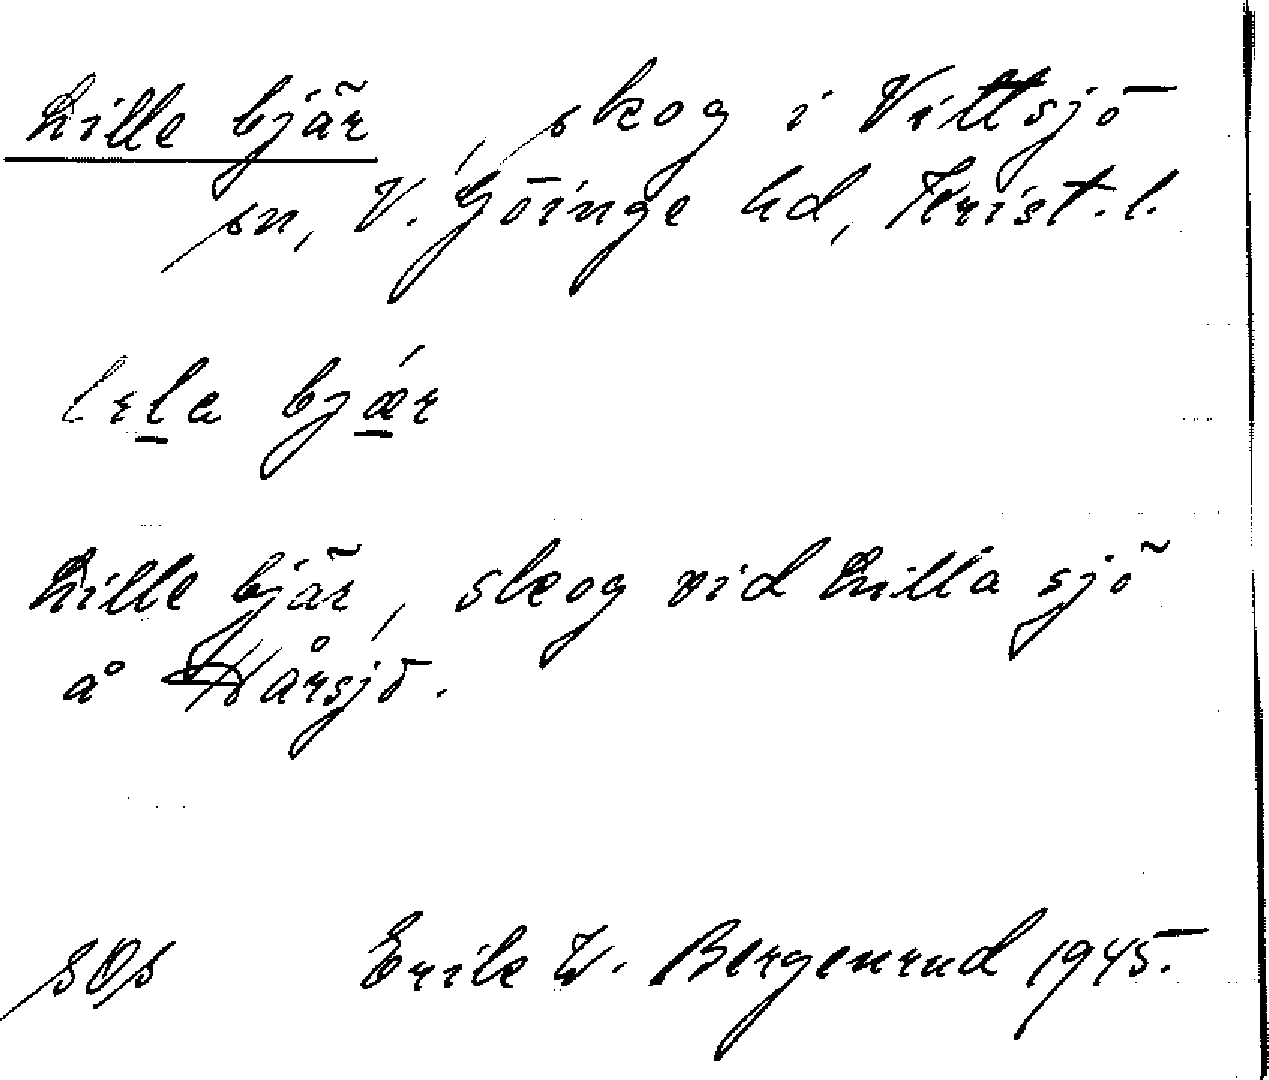 Lille bjär, skog i Vittsjö
sn, V. Göinge hd, Krist. l.
lela bjǽr
Lille bjär, skog vid Lilla sjö
å Hårsjö.
Erik W. Bergenrud 1945.